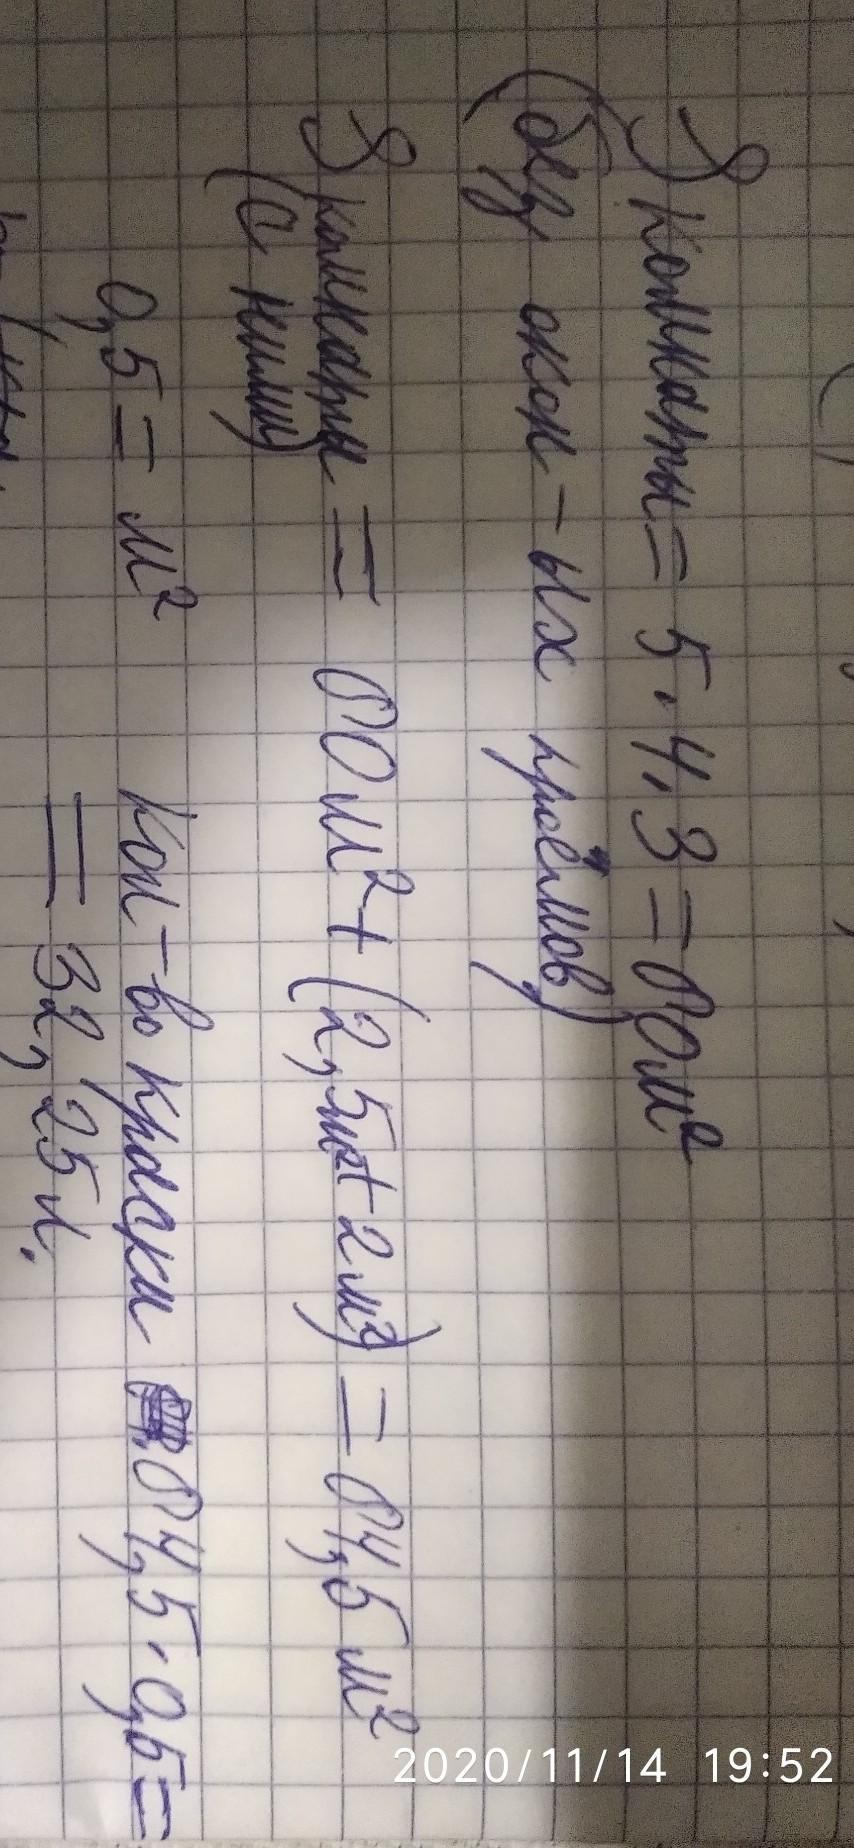 S комнаты = 5 · 4 · 3 = 60 м²
(без окон-ых проёмов)
S комнаты = 60 м² + (2,5 м² + 2 м²) = 64,5 м²
(с ними)
0,5 = м² Кол-во краски 64,5 · 0,5 =
= 32,25 л.
2020/11/14 19:52